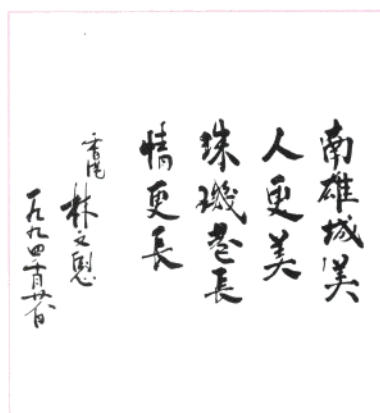 南雄城美
人更美
珠璣巷長
情更長
香港 林文
一九九四十月廿日